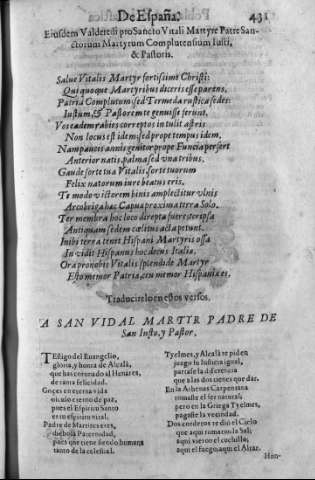 De España. 431
Eiusdem Valderedi pro Sancto Vitali Martyre Patre San-
ctorum Martyrum Complutensium Iusti,
& Pastoris.
Salue Vitalis Martyr fortissime Christi:
Qui quoque Martyribus diceris esse parens,
Patria Complutum sed Termeda rustica sedes:
Iustum, & Pastorem te genuisse ferunt,
Vos eadem rabies correptos intulit astris:
Non locus est idem, sed prope tempus idem,
Nam paucis annis genitor prope
Anterior natis, palma sed una tribus,
Gaude sorte tua Vitalis, sorte tuorum
Felix natorum iure beatus eris.
Te modo victorem binis amplectitur vlnis
Arcobriga hac Capua proxima terra Solo,
Ter membra hoc loco
Antiquam sedem cælitus acta petunt.
Inibi terra tenet Hispani Martyris ossa
Inuidit Hispanus hoc decus Italia.
Ora pro nobis Vitalis splendide Martyr
Esto memor Patriæ, ceu memor Hispaniæ es,
Traducirelo en estos versos.
A SAN VIDAL MARTYR PADRE DE
San Iusto, y Pastor,
TEstigo del Euangelio,
gloria, y honra de Alcalà,
que has coronado al Henares,
de tanta felicidad.
Gozes en eterna vida
siculo eterno de paz,
pues el Espiritu Santo
era tu espiritu vital.
Padre de Martires eres,
diuiola Paternidad,
pues que tiene siendo humana
tanto de la celestial.
Tyelmes, y Alcalà te piden
juzgo tu Iusticia igual,
partase la diferencia
que a las dos tienes que dar.
En la Athenas Carpentana
tomaste el ser natural;
pero en la Griega Tyelmes,
pagaste la vezindad.
Dos enteros te dio el Cielo
que aqui tomaron la Sal;
aqui vieron el cuchillo,
aqui el fuego aqui el Altar.
Hon-